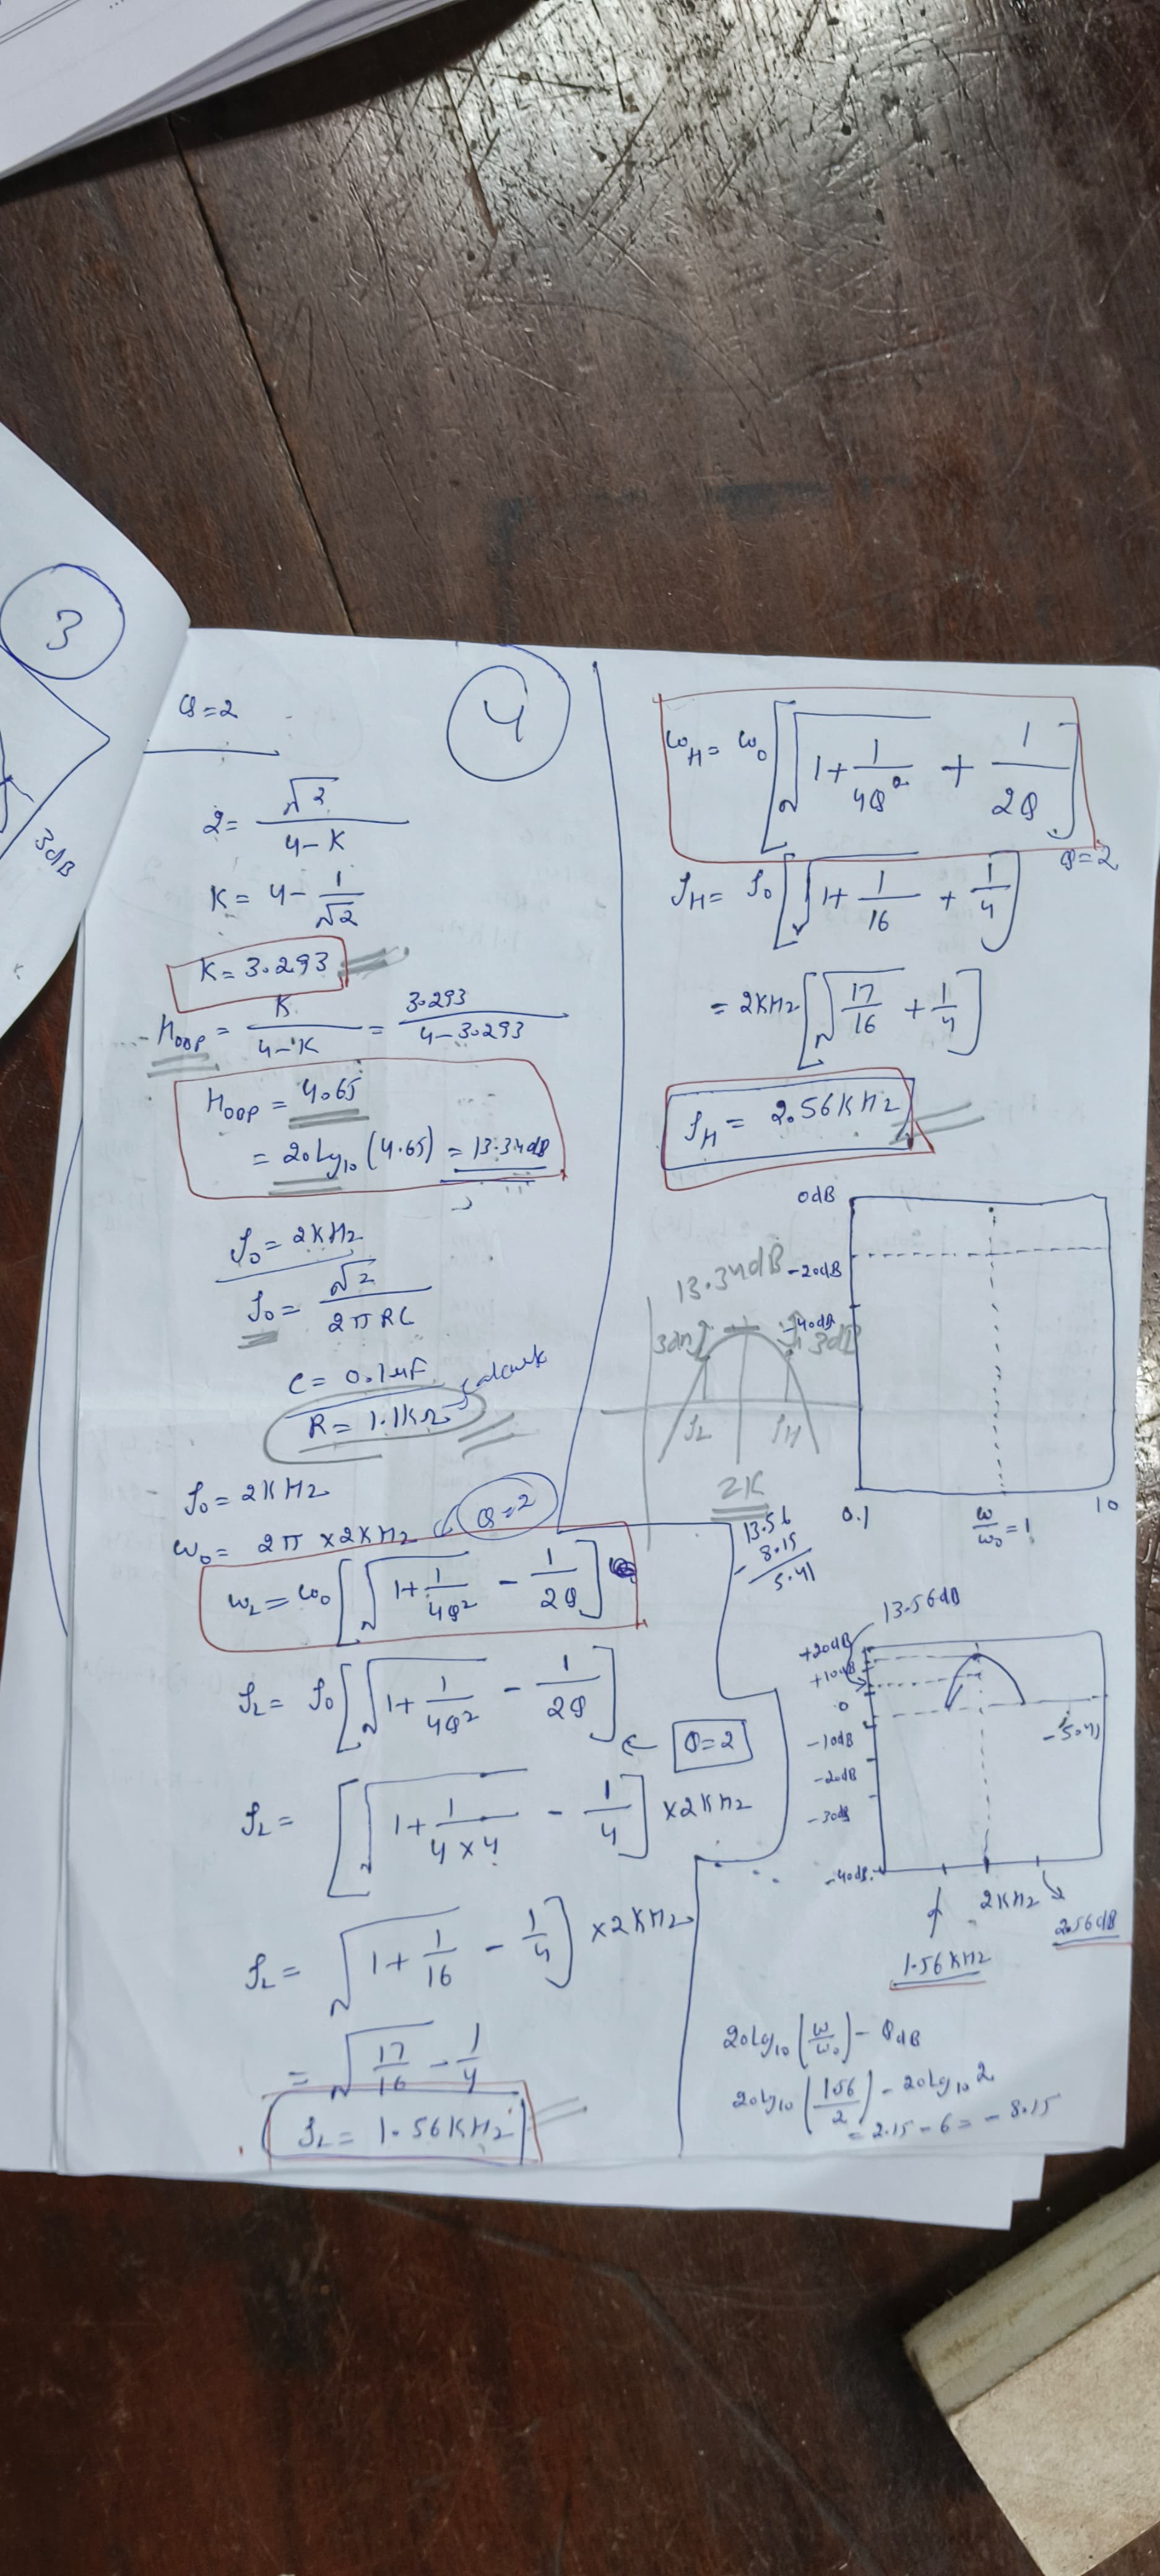 3
3dB
4
Q=2
2 = √2 / (4-K)
K = 4 - 1/√2
K = 3.293
H₀BP = K / (4-K) = 3.293 / (4-3.293)
H₀BP = 4.65
= 20 log₁₀ (4.65) = 13.34dB
f₀ = 2KHz
f₀ = √2 / (2π RC)
C = 0.1μF
R = 1.1KΩ
f₀ = 2KHz
ω₀ = 2π × 2KHz
Q=2
ω_L = ω₀ [√(1+1/4Q²) - 1/2Q]
f_L = f₀ [√(1+1/4Q²) - 1/2Q]
Q=2
f_L = [√(1+1/(4×4)) - 1/4] ×2KHz
f_L = √(1+1/16) - 1/4] ×2KHz
= √(17/16) - 1/4
f_L = 1.56KHz
ω_H = ω₀ [√(1+1/4Q²) + 1/2Q]
Q=2
f_H = f₀ [√(1+1/16) + 1/4]
= 2KHz [√(17/16) + 1/4]
f_H = 2.56KHz
0dB
-20dB
-40dB
0.1
ω/ω₀ = 1
10
13.34dB
3dB
3dB
f_L
f_H
2K
13.56
- 8.15
5.41
13.56dB
+20dB
+10dB
0
-10dB
-20dB
-30dB
-40dB
-5.41
2KHz
2.56dB
1.56KHz
20 log₁₀ (ω/ω₀) - QdB
20 log₁₀ (1.56/2) - 20 log₁₀ 2
= 2.15 - 6 = - 8.15